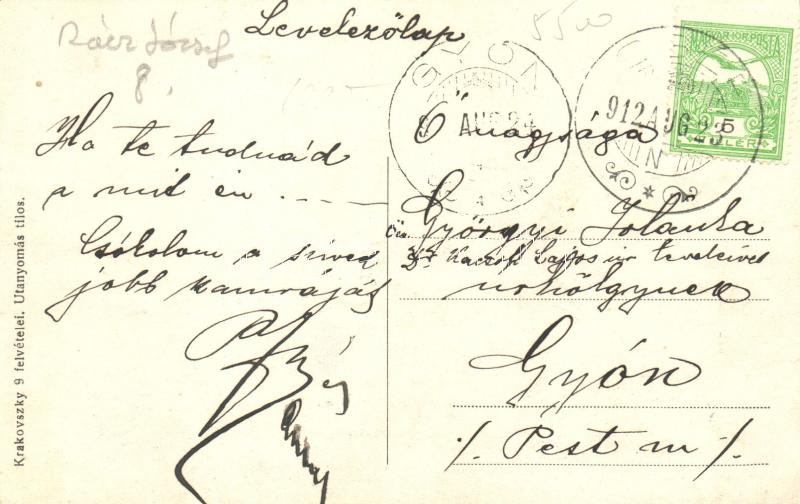 Levelezőlap
Rácz József
8.
5500
MAGYAR KIR. POSTA
5
FILLÉR
GYÓN
AUG 24
912 AUG 23
N
Ha te tudnád
a mit én _ _ _ _
Csókolom a szíved
jobb kamráját
Ő nagysága
Györgyi Jolánka
Lajos úr leveleivel
úrhölgynek
Gyón
/. Pest m /.
Krakovszky 9 felvételei. Utanyomás tilos.